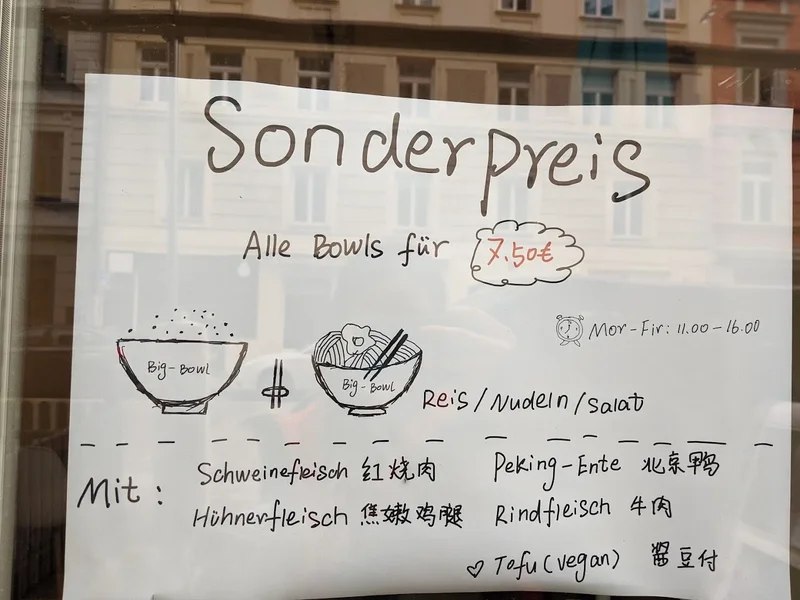 Sonderpreis
Alle Bowls für 7.50€
Mor-Fir: 11.00-16.00
Big-Bowl Big-Bowl
Reis/Nudeln/Salat
Mit:
Schweinefleisch 红烧肉 Peking-Ente 北京鸭
Hühnerfleisch 焦嫩鸡腿 Rindfleisch 牛肉
♡ Tofu (vegan) 酱豆付